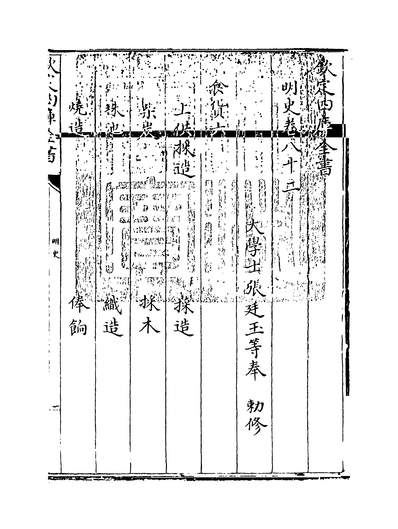 欽定四庫全書
明史卷八十二
大學士張廷玉等奉 勅修
食貨六
上供採造 採造
柴炭 採木
珠池 織造
燒造 俸餉
明史